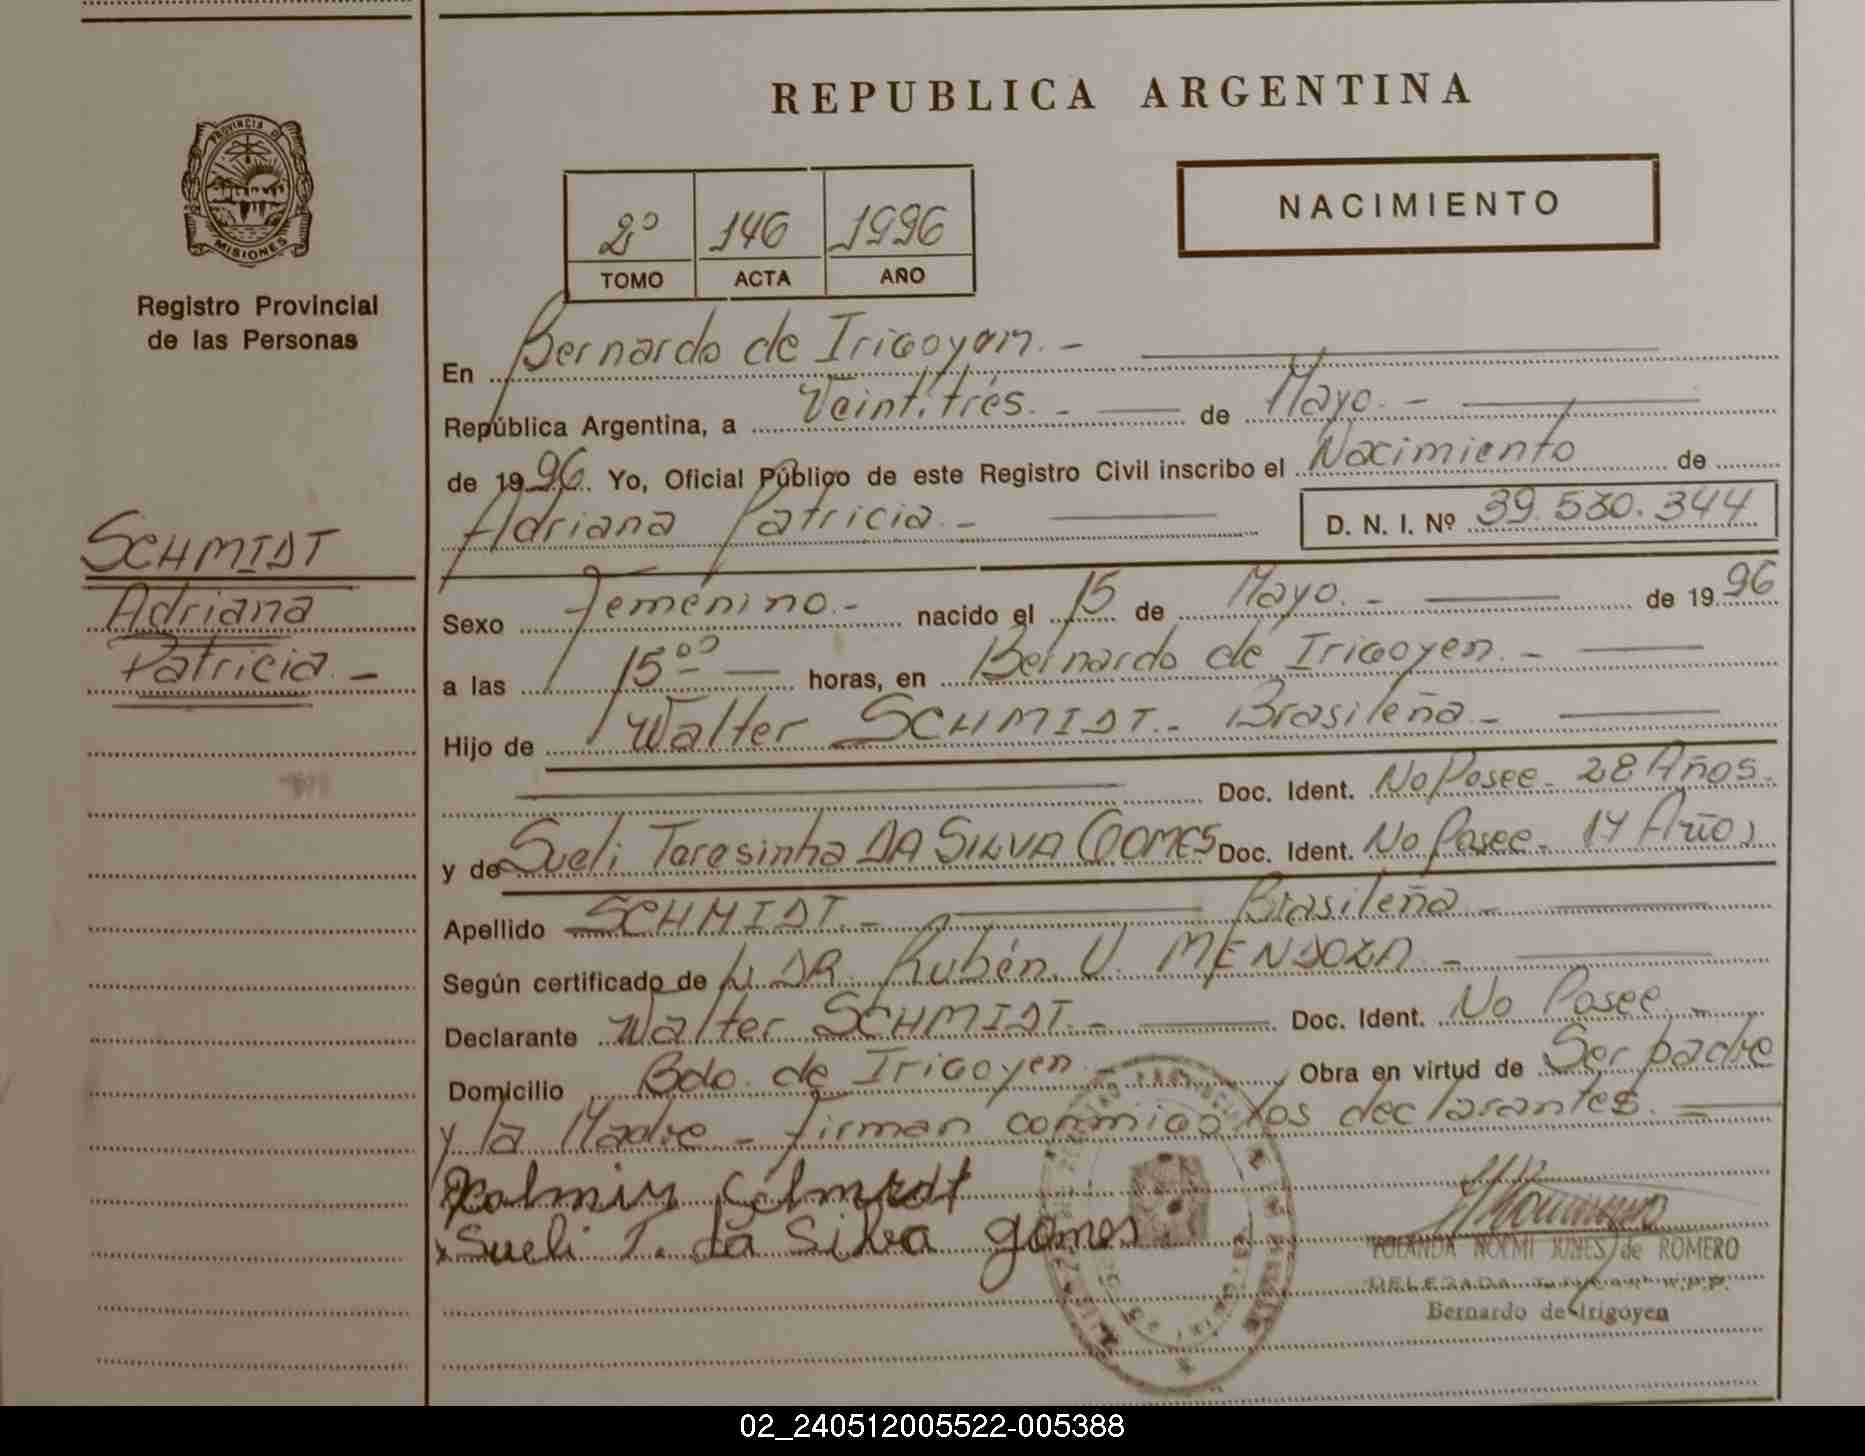 REPUBLICA ARGENTINA
PROVINCIA D
MISIONES
Registro Provincial
de las Personas
NACIMIENTO
2º 146 1996
TOMO ACTA AÑO
En Bernardo de Irigoyen. -
República Argentina, a Veintitrés. - de Mayo. -
de 1996. Yo, Oficial Público de este Registro Civil inscribo el Nacimiento de
Adriana Patricia. - D. N. I. Nº 39.530.344
SCHMIDT
Adriana
Patricia. -
Sexo Femenino. - nacido el 15 de Mayo. - de 1996
a las 15ºº horas, en Bernardo de Irigoyen. -
Hijo de Walter SCHMIDT. - Brasileña -
Doc. Ident. No Posee - 28 Años.
y de Sueli Teresinha DA SILVA GOMES Doc. Ident. No Posee - 17 Años
Apellido SCHMIDT. - Brasileña -
Según certificado de DR. Rubén. U. MENDOZA -
Declarante Walter SCHMIDT. - Doc. Ident. No Posee. -
Domicilio Bdo. de Irigoyen - Obra en virtud de Ser padre
y la Madre - firman conmigo los declarantes. -
Sueli T. da Silva gomes
YOLANDA NOEMI de ROMERO
DELEGADA
Bernardo de Irigoyen
02_240512005522-005388